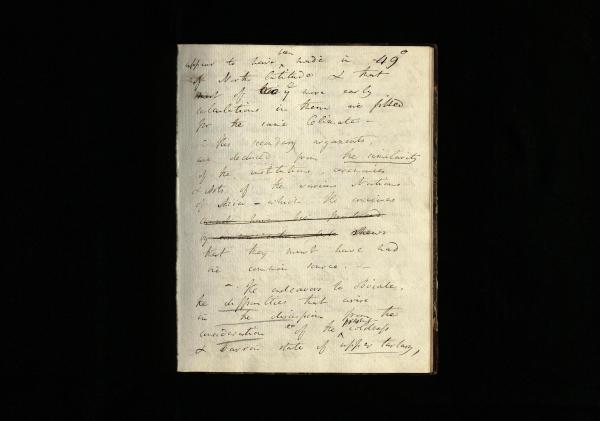 been
appear to have ^ made in 49°
of North Latitude & that
most of the very more early
calculations in them are fitted
for the same Climate –
– His secondary arguments,
are deduced from the similarity
of the institutions, ceremonies
& Arts of the various Nations
of Asia – which he conceives
cannot have be produced
by communication, but shews
that they must have had
one common source. –
– He endeavors to obviate,
the difficulties that arise
in the discussion from the
consideration of the present coldness
& barren state of upper tartary,